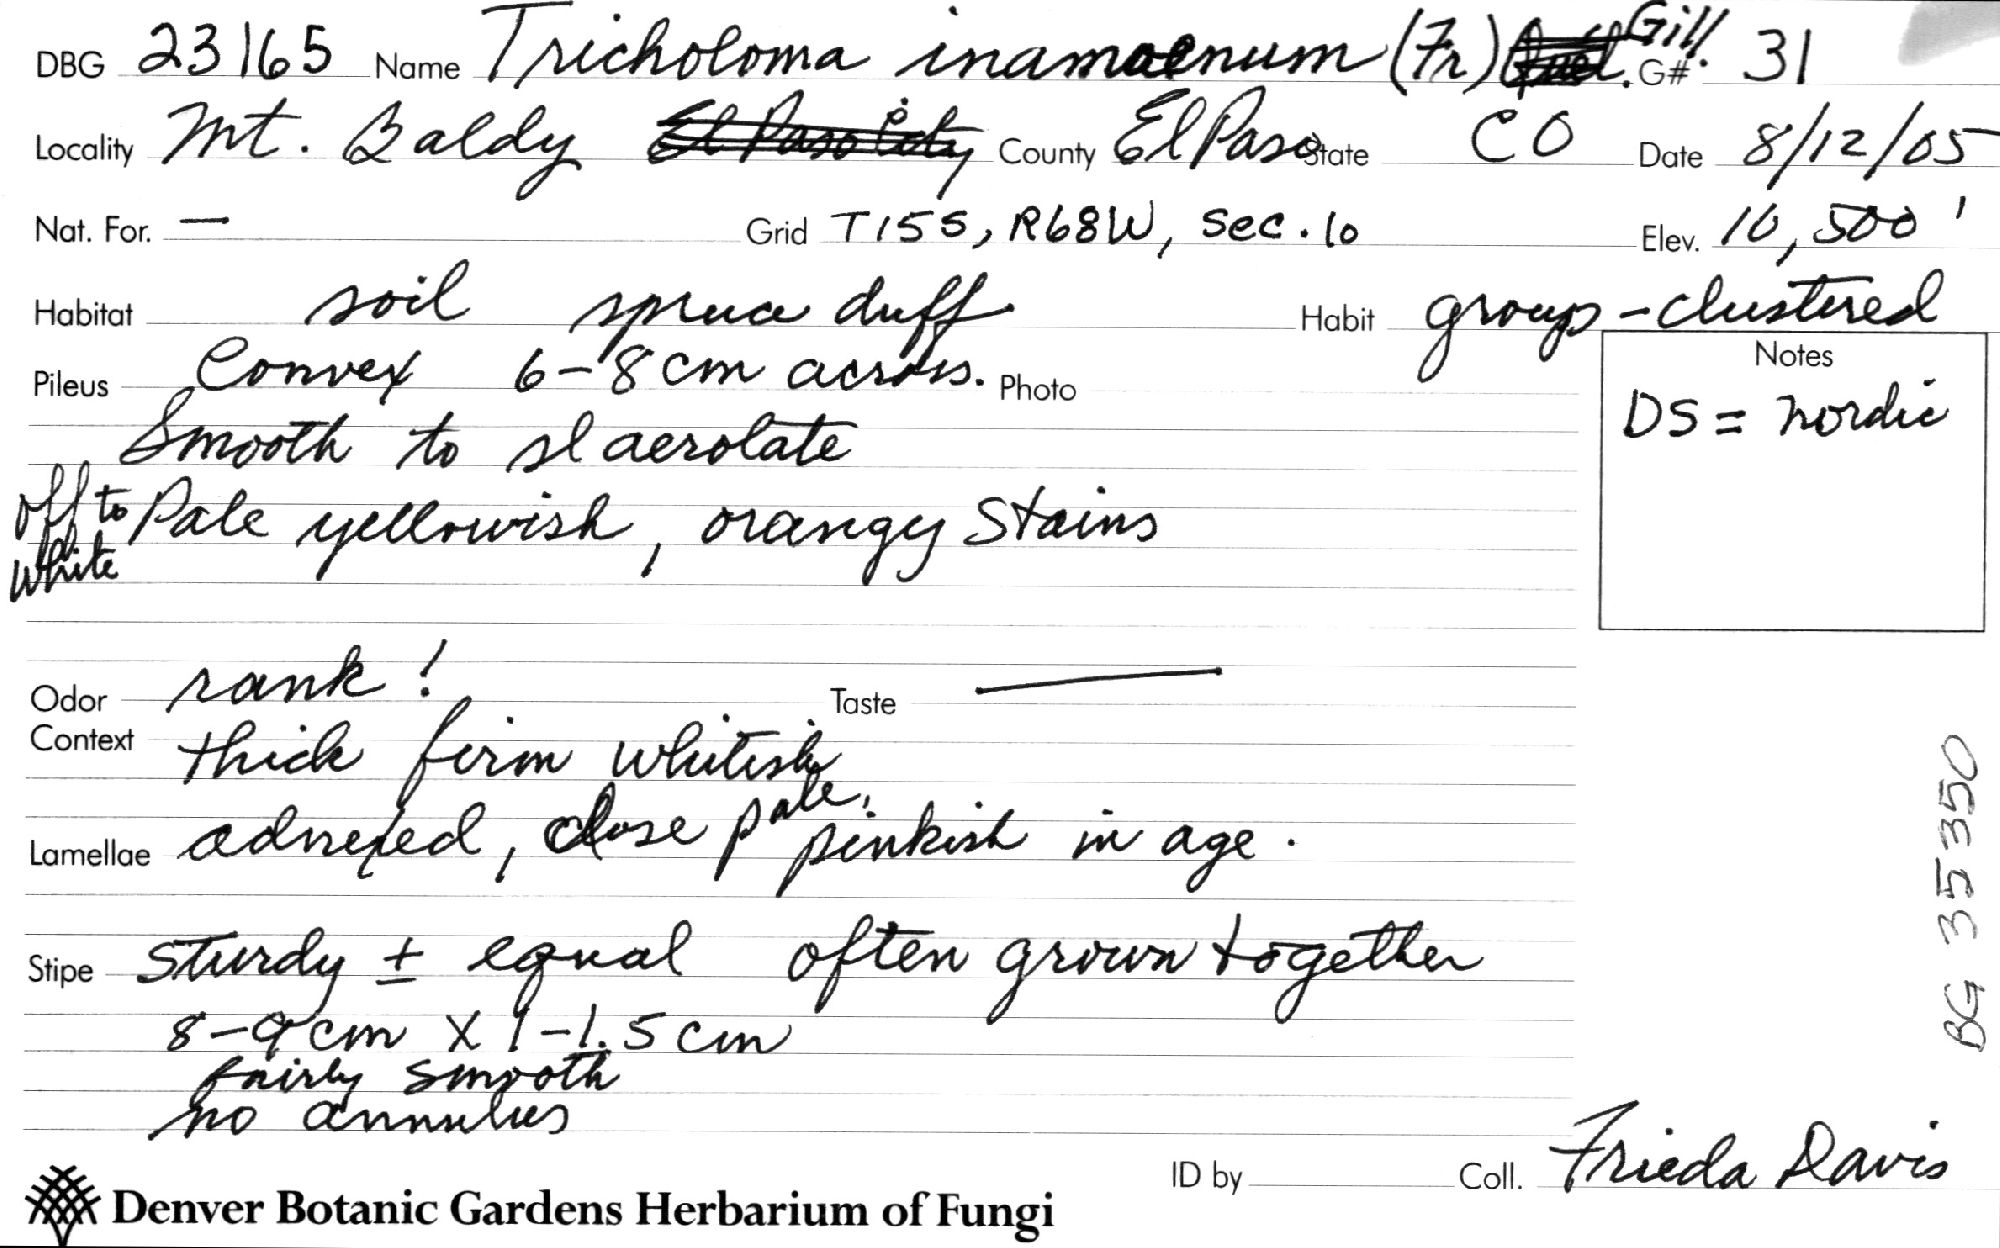 DBG 23165 Name Tricholoma inamoenum (Fr) Gill. G# 31
Locality Mt. Baldy El Paso County El Paso State CO Date 8/12/05
Nat. For. — Grid T15S, R68W, Sec. 10 Elev. 10,500'
Habitat soil spruce duff Habit group-clustered
Pileus Convex 6-8 cm across. Photo
Notes
DS = nordic
Smooth to sl aerolate
off to Pale yellowish, orangy Stains
white
Odor rank! Taste —
Context thick firm whitish
Lamellae adnexed, close pale, pinkish in age.
Stipe sturdy ± equal often grown together
8-9 cm X 1-1.5 cm
fairly smooth
no annulus
BG 35350
ID by Coll. Frieda Davis
Denver Botanic Gardens Herbarium of Fungi